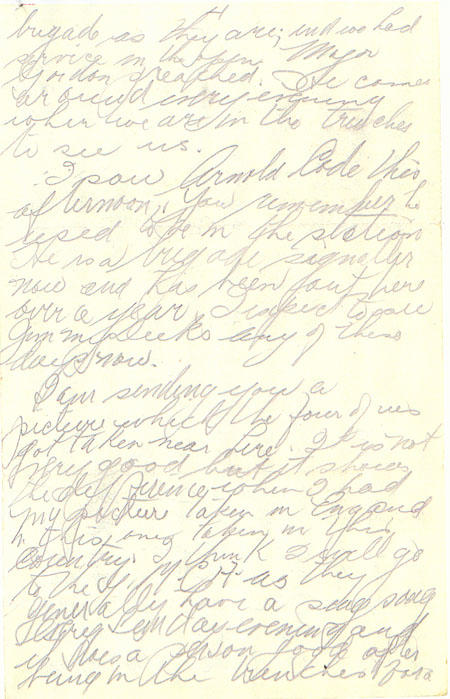 brigade as they are; and we had
service in the open, Major
Gordon preached. He comes
around every evening
when we are in the trenches
to see us.
I saw Arnold Code this
afternoon, You remember he
used to be in the station
He is a brigade signaller
now and has been out here
over a year, I expect to see
Jimmy Seeks any of these
days now.
I am sending you a
picture which the four of us
got taken near here. It is not
very good but it shows
the difference when I had
my picture taken in England
& this one taken in this
country. I think I will go
to the Y.M.C.A. as they
generally have a sing song
there Sunday evening and
it does a person good after
being in the trenches for a